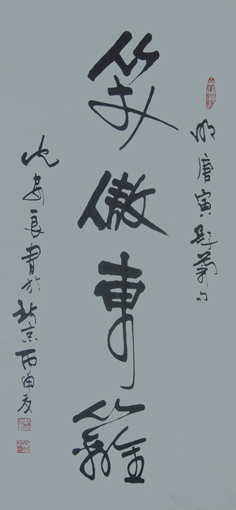 明唐寅題菊句
笑傲東籬
沈安良書於北京丙申夏